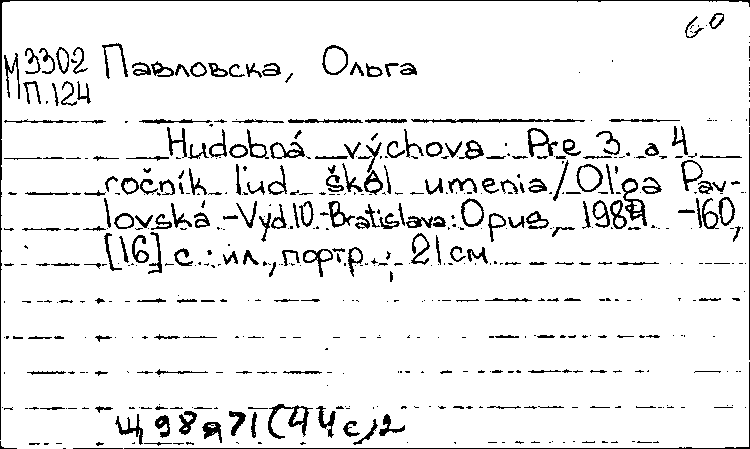 60
М3302 Павловска, Ольга
П.124
Hudobná výchova : Pre 3. a 4.
ročník ľud. škôl umenia/Oľga Pav-
lovská -Vyd.10-Bratislava: Opus, -160,
[16] с : ил., портр. ; 21см
Щ98я71(44с)2